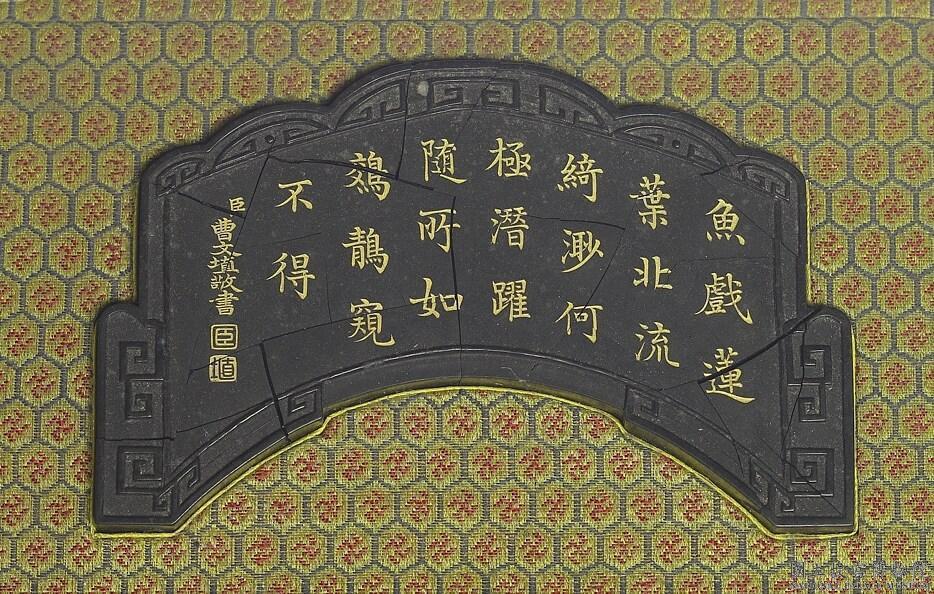 魚戲蓮
葉北流
綺渺何
極潛躍
随所如
鵁鶄窺
不得
臣曹文埴敬書
臣
埴